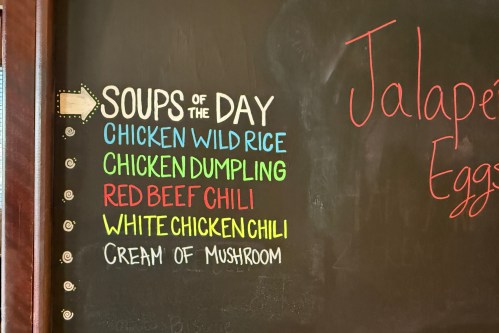 SOUPS OF THE DAY
CHICKEN WILD RICE
CHICKEN DUMPLING
RED BEEF CHILI
WHITE CHICKEN CHILI
CREAM OF MUSHROOM
Eggs